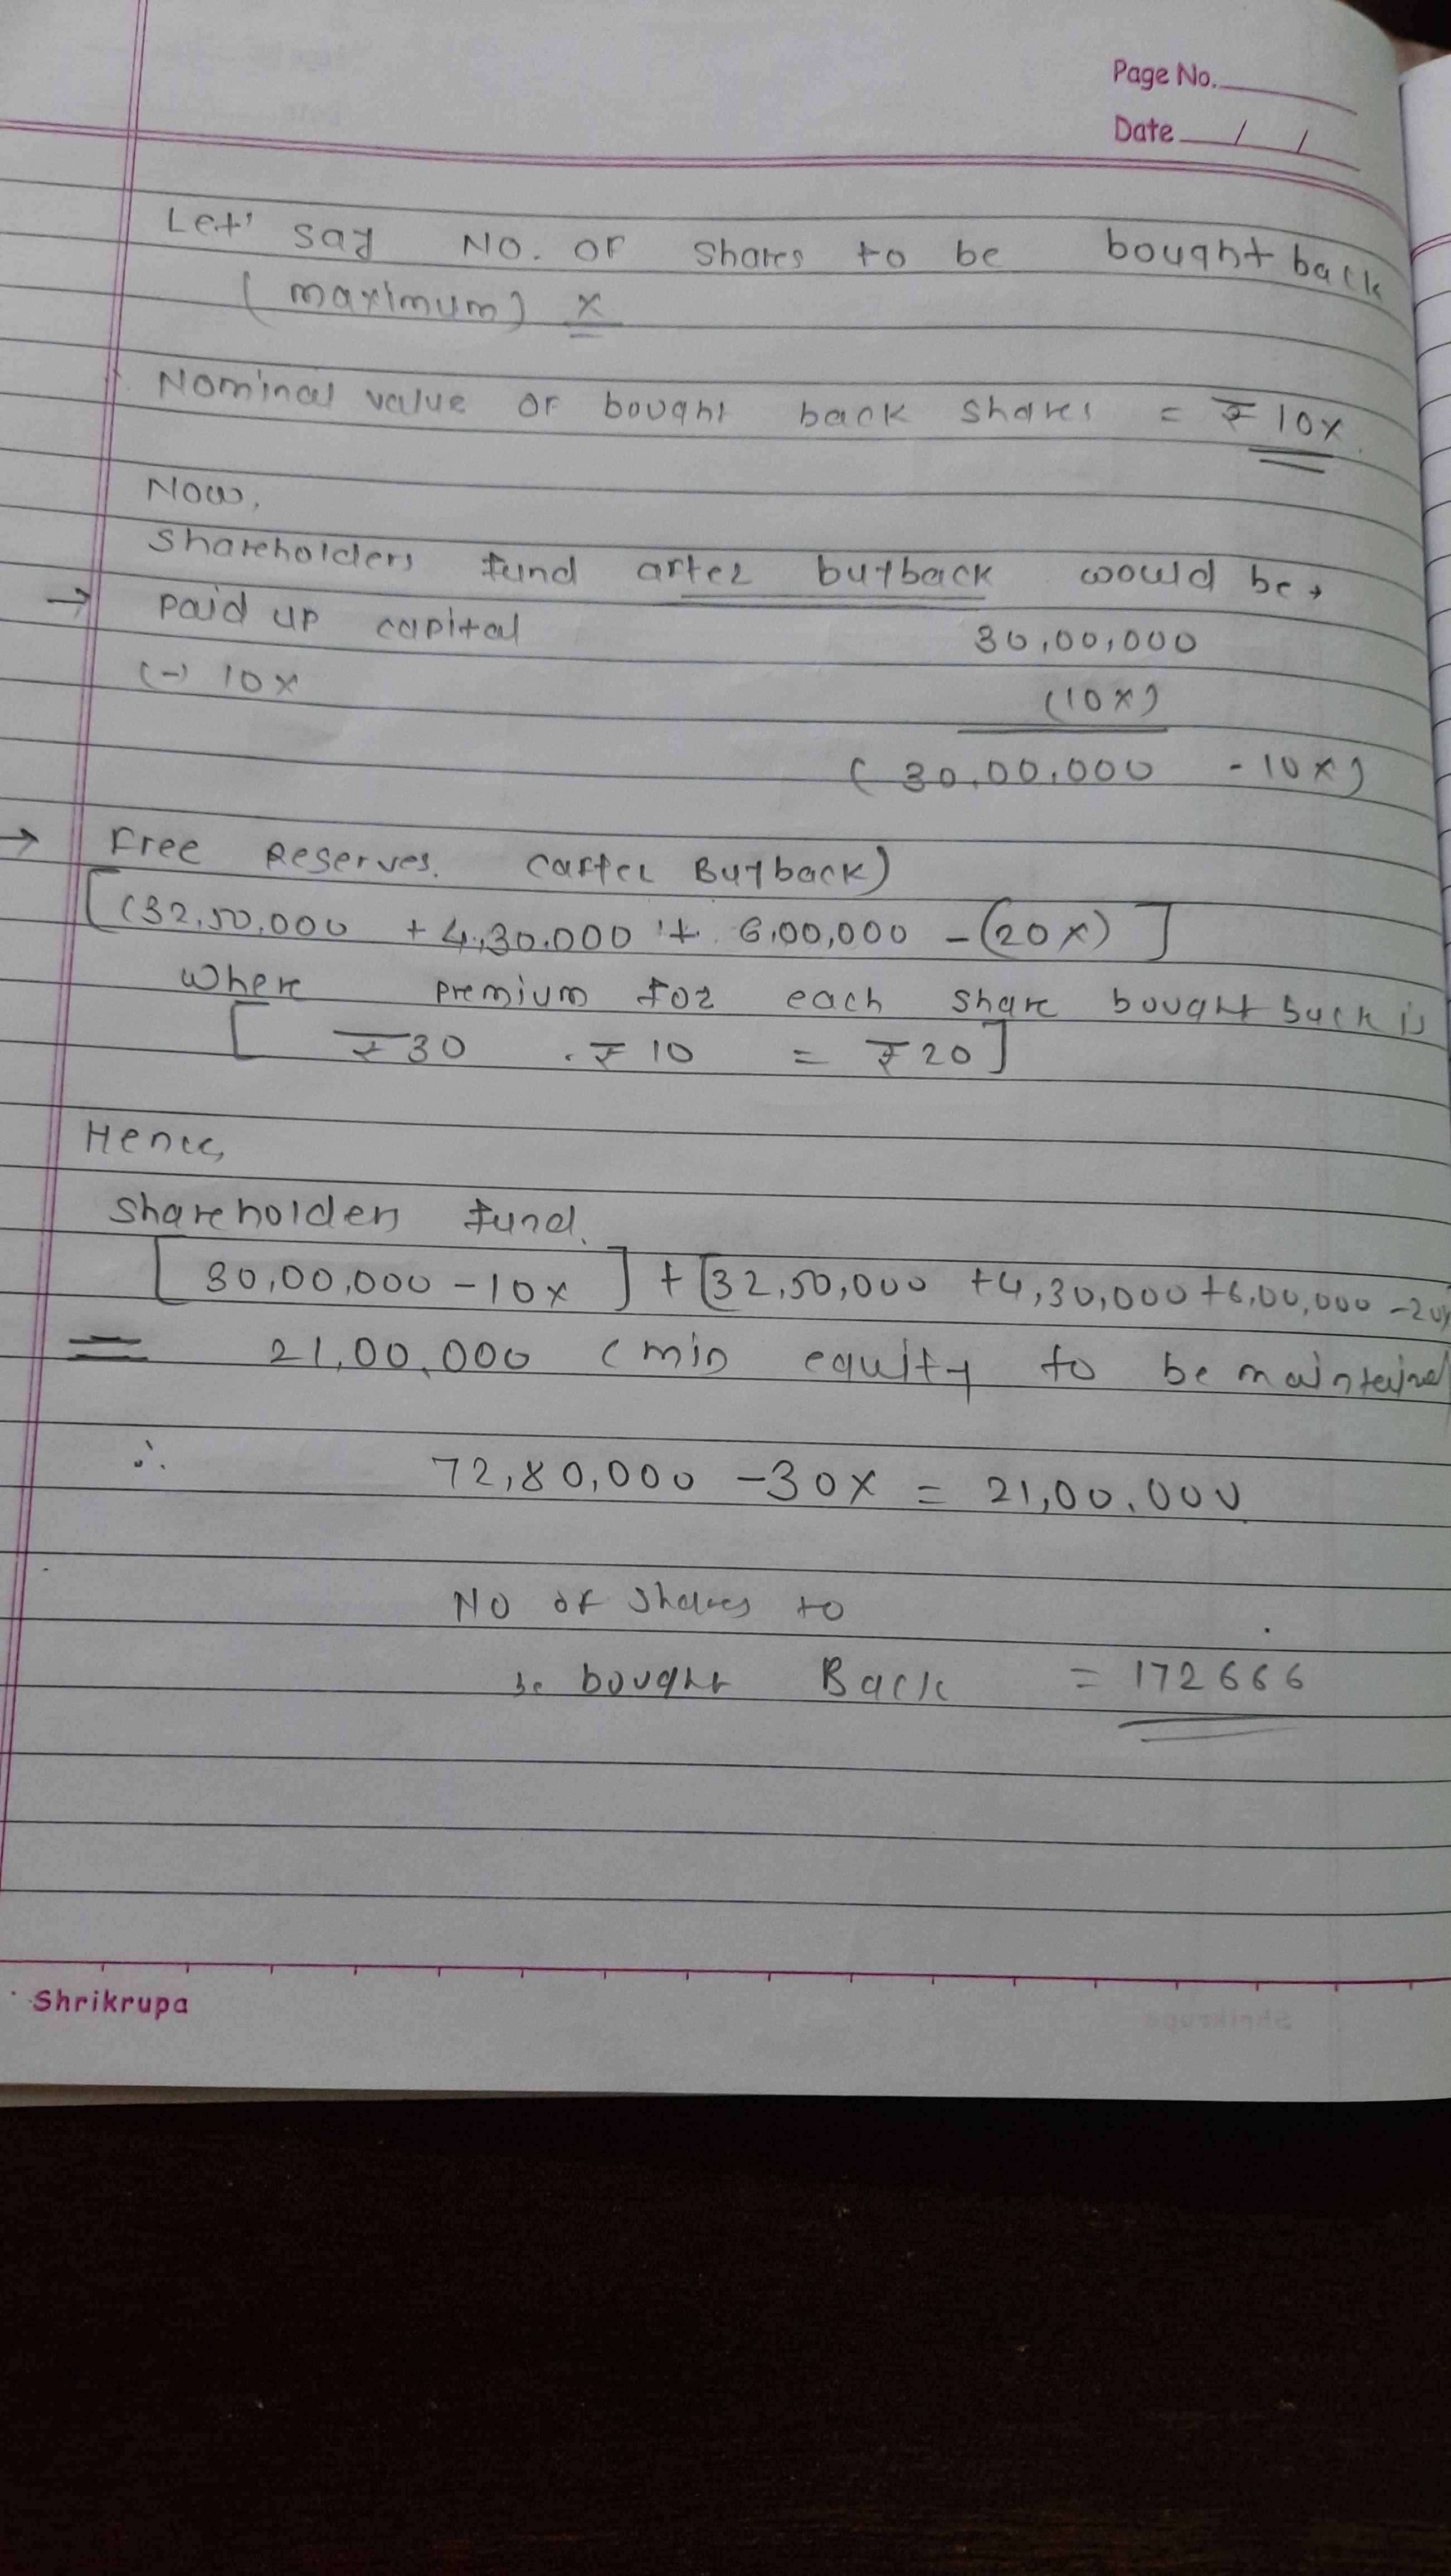 Page No.
Date / /
Let' say No. of shares to be bought back
(maximum) x
Nominal value of bought back shares = ₹ 10x.
Now,
Shareholders fund after buyback would be →
→ Paid up capital 30,00,000
(-) 10x (10x)
(30,00,000 - 10x)
→ Free Reserves. (after Buyback)
[(32,50,000 + 4,30,000 + 6,00,000 - (20x)]
where premium for each share bought back is
[₹30 - ₹10 = ₹20]
Hence,
Shareholders fund.
[30,00,000 - 10x] + [32,50,000 + 4,30,000 + 6,00,000 - 20x
= 21,00,000 (min equity to be maintained
∴ 72,80,000 - 30x = 21,00,000
No of shares to
be bought Back = 172666
Shrikrupa